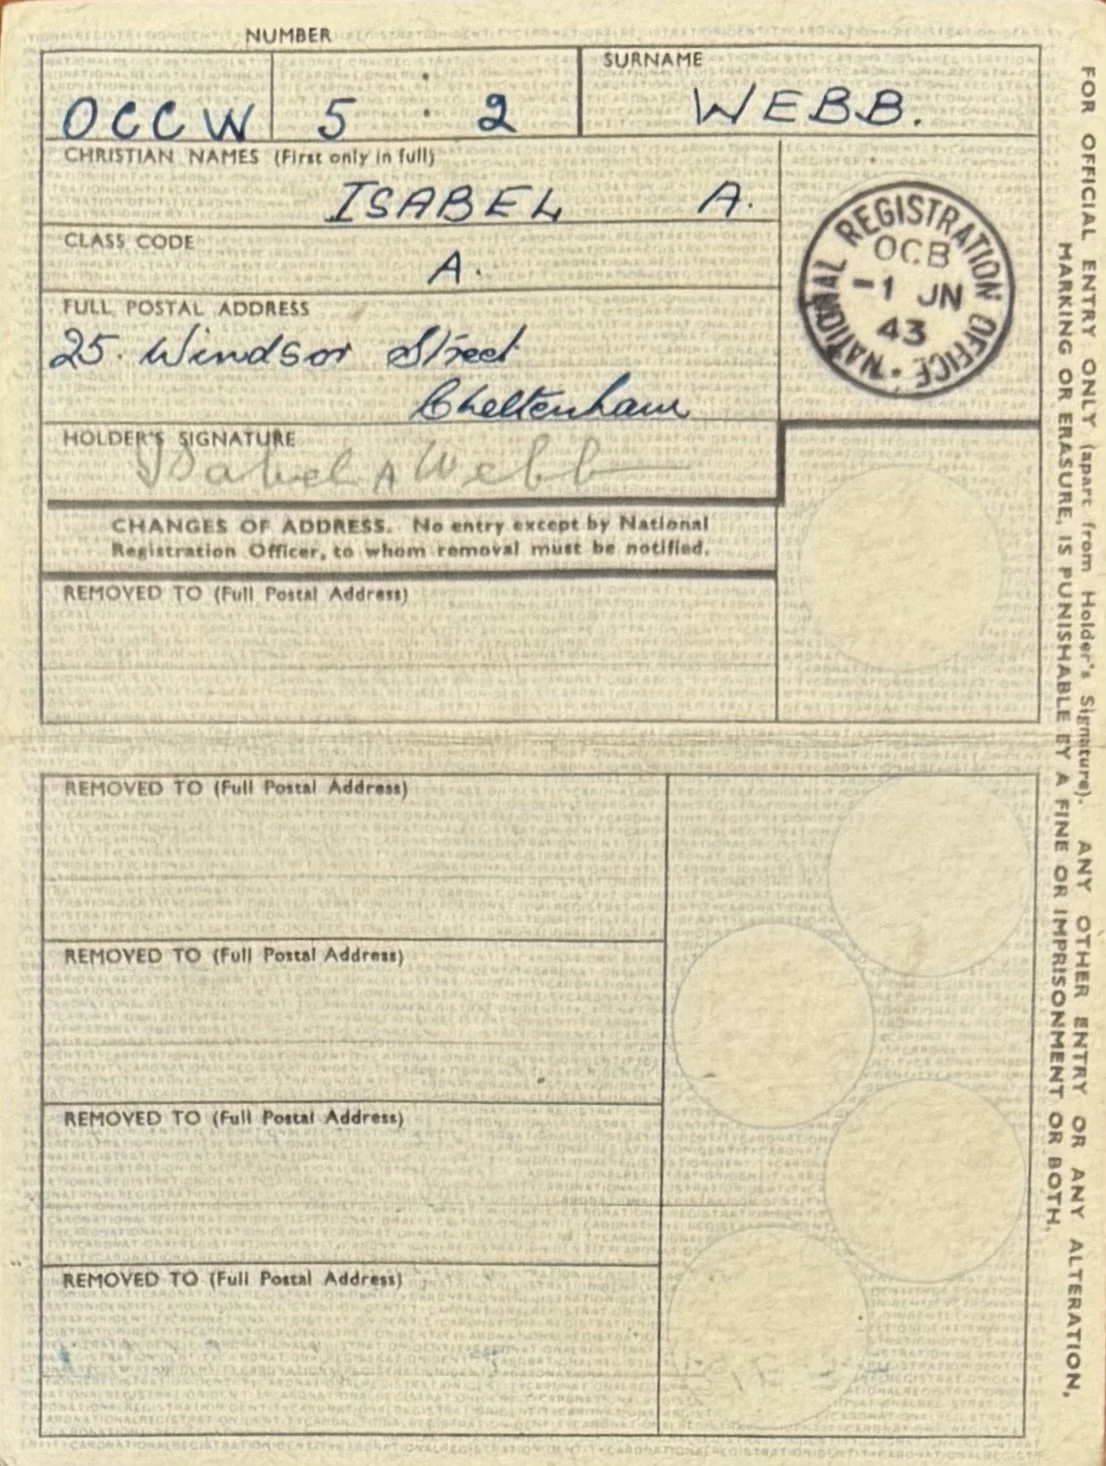 NUMBER
OCCW 5 : 2
SURNAME
WEBB.
CHRISTIAN NAMES (First only in full)
ISABEL A.
CLASS CODE
A.
FULL POSTAL ADDRESS
25. Windsor Street
Cheltenham
NATIONAL REGISTRATION OFFICE
OCB
-1 JN
43
HOLDER'S SIGNATURE
Isabel A Webb
CHANGES OF ADDRESS. No entry except by National
Registration Officer, to whom removal must be notified.
REMOVED TO (Full Postal Address)
REMOVED TO (Full Postal Address)
REMOVED TO (Full Postal Address)
REMOVED TO (Full Postal Address)
REMOVED TO (Full Postal Address)
FOR OFFICIAL ENTRY ONLY (apart from Holder's Signature). ANY OTHER ENTRY OR ANY ALTERATION,
MARKING OR ERASURE, IS PUNISHABLE BY A FINE OR IMPRISONMENT OR BOTH.